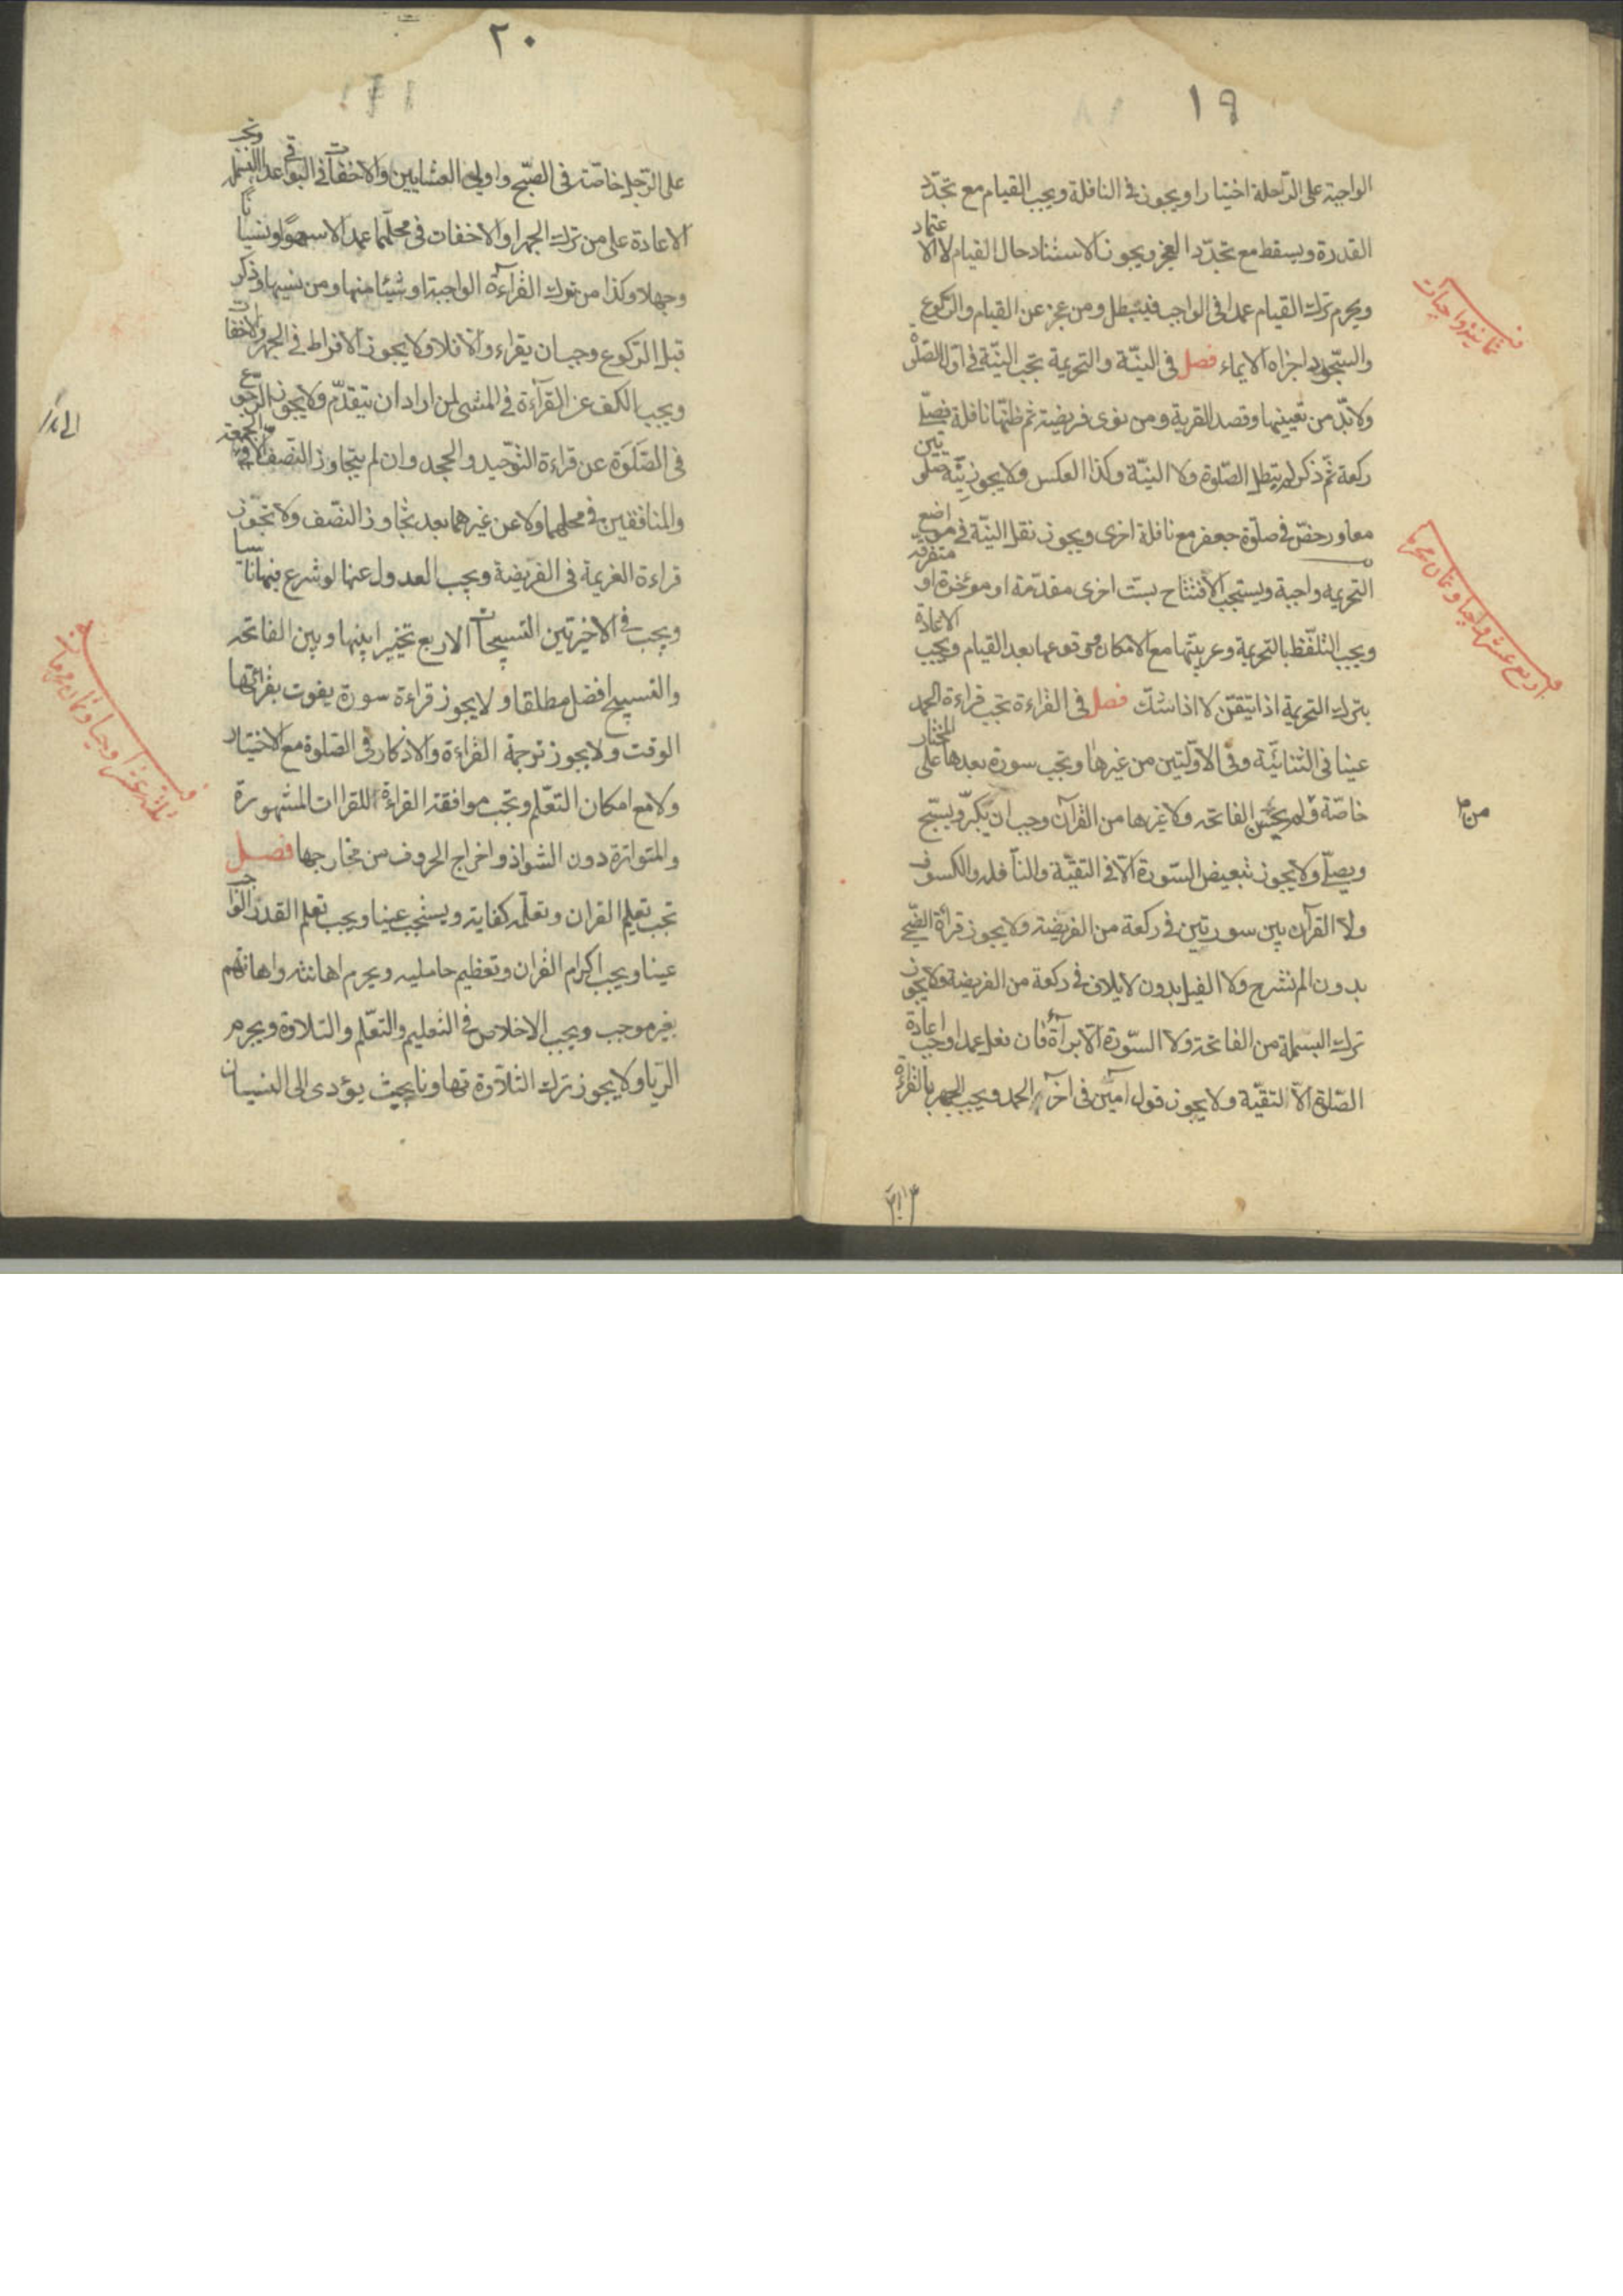 ١٩
الواجبة على الرّاحلة اختيارا ويجوز في النافلة ويجب القيام مع تجدّد
القدرة ويسقط مع تجدّد العجز ويجوز الاستناد حال القيام لا الاعتماد
ويحرم ترك القيام عمدا في الواجب فيبطل ومن عجز عن القيام والرّكوع
والسّجود اجزاه الايماء فصل في النيّة والتحريمة تجب النيّة في اوّل الصّلوة
ولابدّ من تعيينها وقصد القربة ومن نوى فريضة ثم ظنّها نافلة فصلّى
ركعة ثمّ ذكر لم يبطل الصّلوة ولا النيّة وكذا العكس ولا يجوز نيّة صلوتين
معا ورخصّ في صلوة جعفر مع نافلة اخرى ويجوز نقل النيّة في مواضع متفرقة
التحريمة واجبة ويستحب الافتتاح بستّ اخرى مقدّمة او مؤخرة او
ويجب التلفّظ بالتحريمة وعربيّتها مع الامكان وقوعها بعد القيام ويجب الاعادة
بترك التحريمة اذا تيقّن لا اذا شكّ فصل في القراءة تجب قراءة الحمد
عينا في الثنائيّة وفي الاوّلتين من غيرها وتجب سورة بعدها على المختار
خاصّة ولم يحسن الفاتحه ولا غيرها من القرآن وجب ان يكبّر ويسبّح
ويصلّي ولا يجوز تبعيض السّورة الّا في التقيّة والنّافلة والكسوف
ولا القرآن بين سورتين في ركعة من الفريضة ولا يجوز قرائة الضّحى
بدون الم نشرح ولا الفيل بدون لايلاف في ركعة من الفريضة ولا يجوز
ترك البسملة من الفاتحة ولا السّورة الّا برآءة فان فعل عمدا وجب اعادة
الصّلوة الّا التقيّة ولا يجوز قول آمين في آخر الحمد ويجب الجهر بالقراءة
ثمانية واجبات
من م
٢٠
على الرّجل خاصّة في الصّبح واولي العشايين والاخفات في البواقي عدا البسملة
الاعادة على من ترك الجهر او الاخفات في محلّهما عمدا لا سهوا ونسيانا
وجهلا وكذا من ترك القراءة الواجبة او شيئا منها ومن نسيها وذكر
قبل الرّكوع وجب ان يقراء والّا فلا ولا يجوز الافراط في الجهر والاخفات
ويجب الكف عن القرآءة في المشى لمن اراد ان يتقدّم ولا يجوز الرجوع
في الصّلوة عن قراءة التوّحيد والجحد وان لم يتجاوز النّصف الّا في الجمعة
والمنافقين في محلهما ولا عن غيرهما بعد تجاوز النصّف ولا تجوز
قراءة العزيمة في الفريضة ويجب العدول عنها لو شرع فيها ناسيا
ويجب في الاخيرتين التسبيحات الاربع تخييرا بينها وبين الفاتحه
والتسبيح افضل مطلقا ولا يجوز قراءة سورة يفوت بقرائتها
الوقت ولا يجوز ترجمة القراءة والاذكار في الصّلوة مع الاختيار
ولا مع امكان التعّلم وتجب موافقة القراءة للقراات المشهورة
والمتواترة دون الشواذ واخراج الحروف من مخارجها فصل
تجب تعليم القران وتعلّمه كفاية ويستحب عينا ويجب تعلم القدر الواجب
عينا ويجب اكرام القران وتعظيم حامليه ويحرم اهانته واهانتهم
بغير موجب ويجب الاخلاص في التعليم والتعّلم والتلاوة ويحرم
الرّيا ولا يجوز ترك التلاوة تهاونا بحيث يؤدى الى النسيان